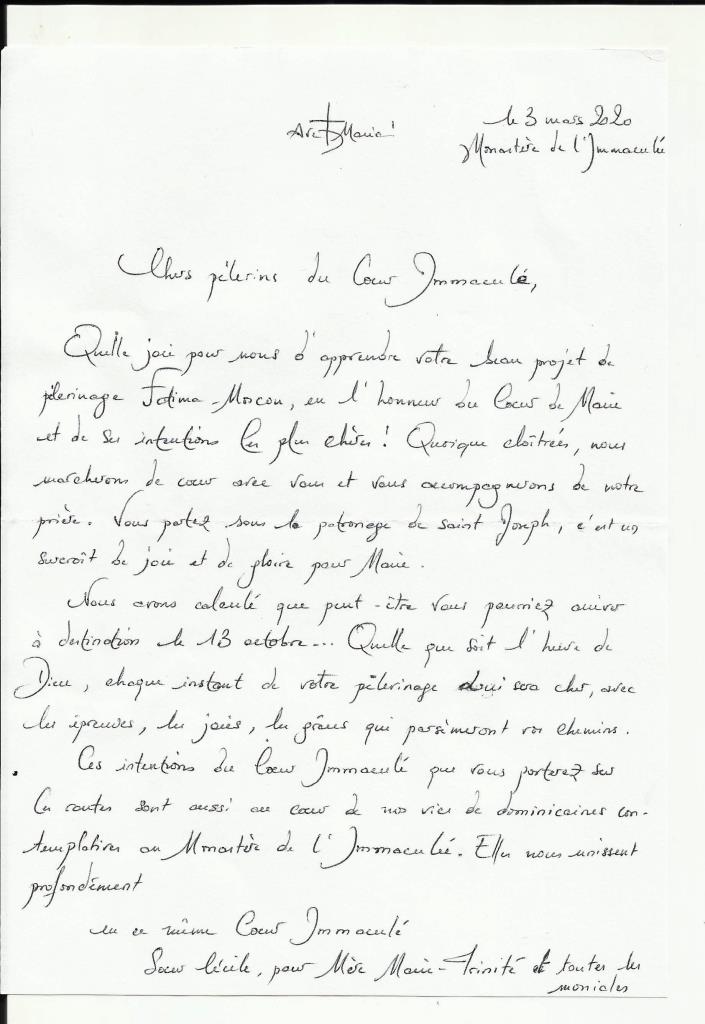 Ave Maria!
le 3 mars 2020
Monastère de l'Immaculée
Chers pèlerins du Coeur Immaculé,
Quelle joie pour nous d'apprendre votre beau projet de
pèlerinage Fatima-Moscou, en l'honneur du Coeur de Marie
et de ses intentions les plus chères ! Quoique cloîtrées, nous
marcherons de coeur avec vous et vous accompagnerons de notre
prière. Vous partez sous le patronage de saint Joseph, c'est un
surcroît de joie et de gloire pour Marie.
Nous avons calculé que peut-être vous pourriez arriver
à destination le 13 octobre... Quelle que soit l'heure de
Dieu, chaque instant de votre pèlerinage lui sera cher, avec
les épreuves, les joies, les grâces qui parsèmeront vos chemins.
Ces intentions du Coeur Immaculé que vous porterez sur
les routes sont aussi au coeur de nos vies de dominicaines con-
templatives au Monastère de l'Immaculée. Elles nous unissent
profondément
en ce même Coeur Immaculé
Soeur Cécile, pour Mère Marie-Trinité et toutes les
moniales